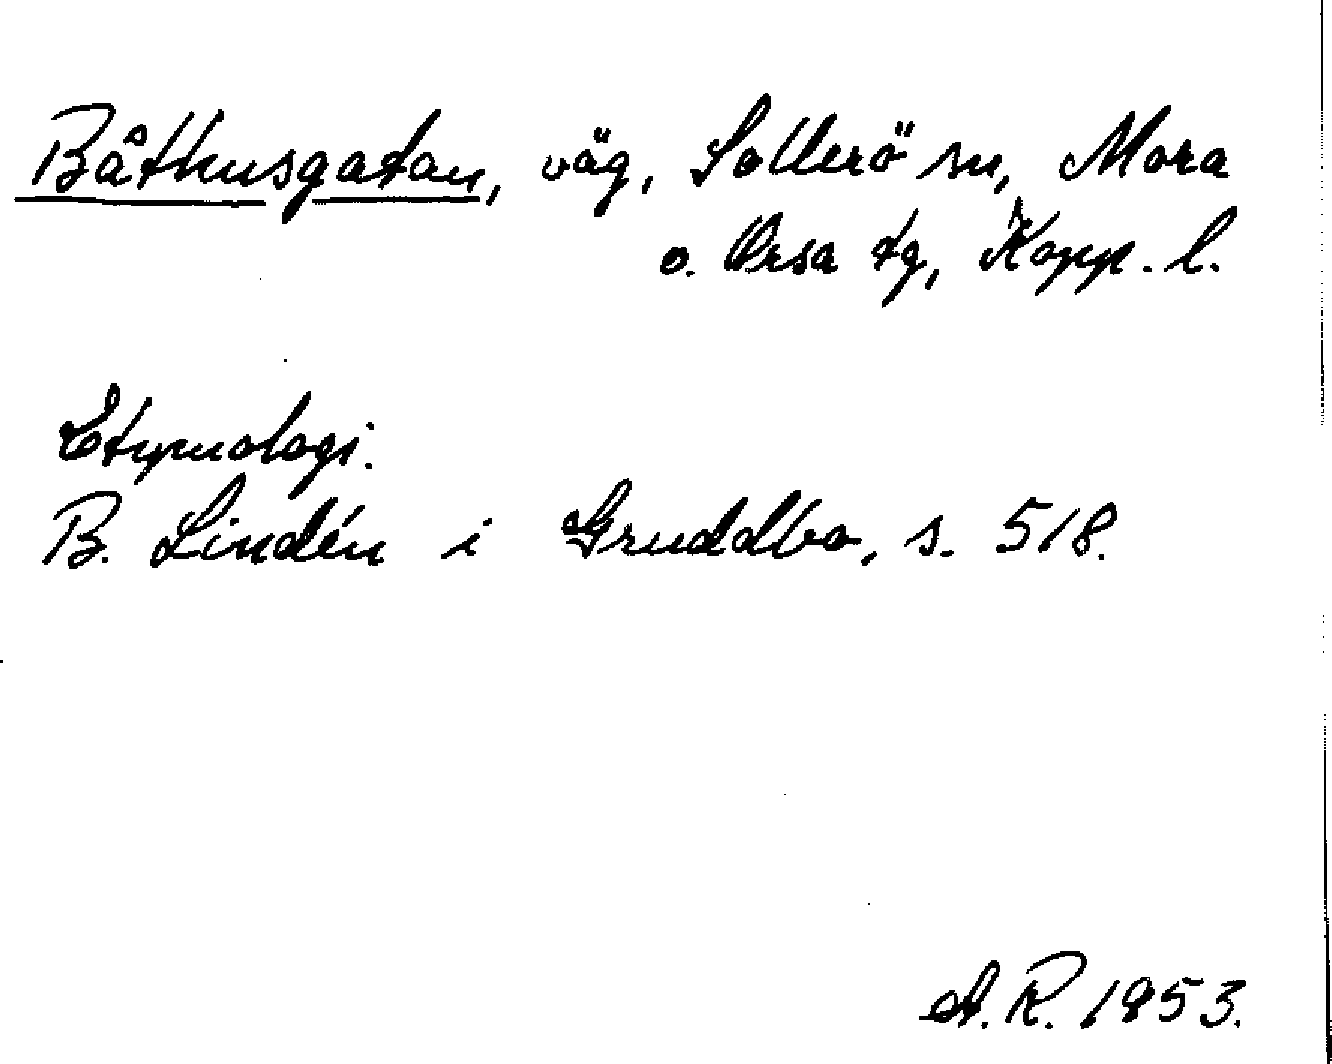 Båthusgatan, väg, Sollerö sn, Mora
o. Orsa tg, Kopp. l.
Etymologi.
B. Lindén i Gruddbo, s. 518.
A. R. 1953.